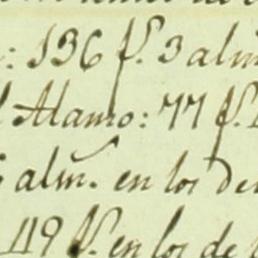 : 136 f.s 3 alm
Alamo: 77 f.s
alm.s en los de
119 f.s en los de